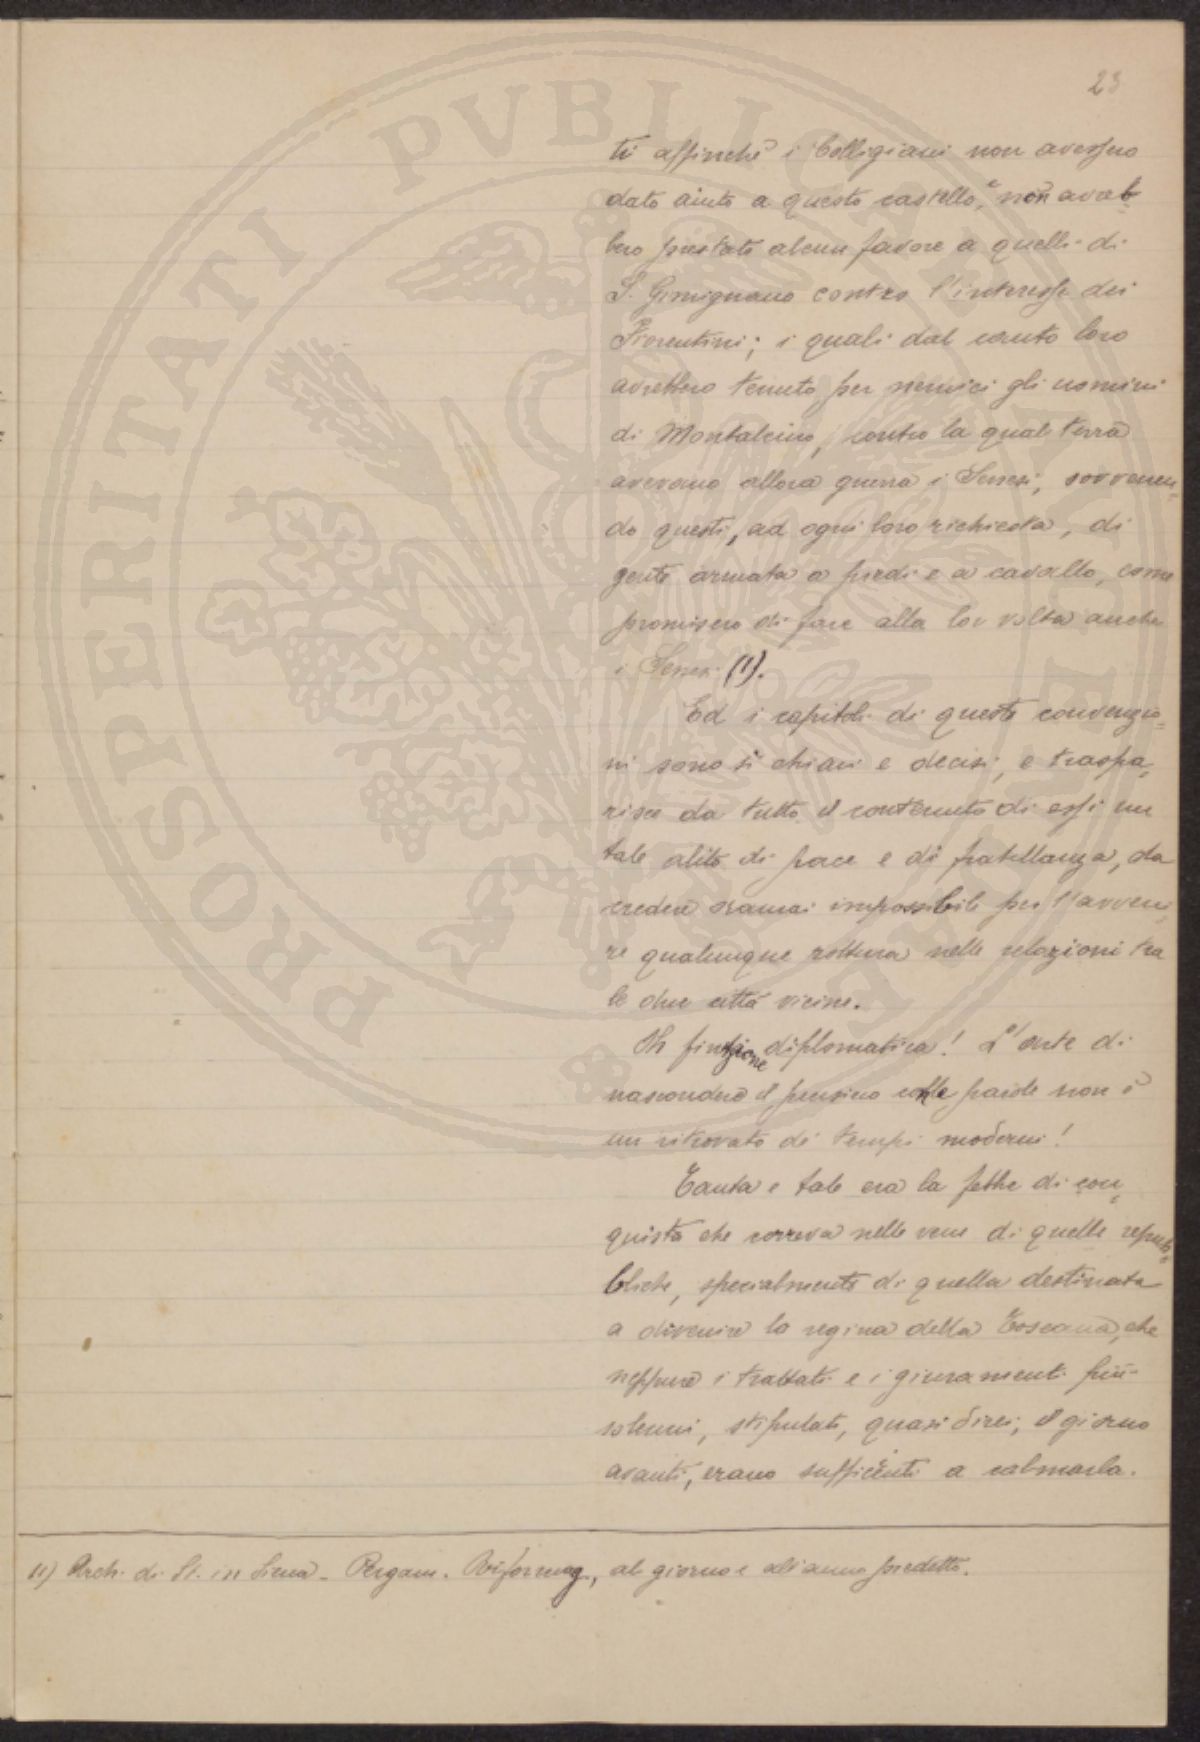 23
ti affinchè i Colligiani non avessero
dato aiuto a questo castello, e non avreb=
bero prestato alcun favore a quelli di
S. Gimignano contro l'interesse dei
Fiorentini; i quali dal canto loro
avrebbero tenuto per nemici gli uomini
di Montalcino, contro la qual terra
avevano allora guerra i Senesi, sovvenen=
do questi, ad ogni loro richiesta, di
gente armata a piedi e a cavallo, come
promisero di fare alla lor volta anche
i Senesi (1).
Ed i capitoli di queste convenzio=
ni sono sì chiari e decisi, e traspa=
risce da tutto il contenuto di essi un
tale alito di pace e di fratellanza, da
credere oramai impossibile per l'avveni=
re qualunque rottura nelle relazioni tra
le due città vicine.
Oh finzione diplomatica! L'arte di
nascondere il pensiero colle parole non è
un ritrovato dei tempi moderni!
Tanta e tale era la febbre di con=
quista che correva nelle vene di quelle repub=
bliche, specialmente di quella destinata
a divenire la regina della Toscana, che
neppure i trattati e i giuramenti più
solenni, stipulati, quasi direi, il giorno
avanti, erano sufficienti a calmarla.
(1) Arch. di St. in Siena - Pergam. Riformag., al giorno e all'anno predetto.
PROSPERITATI PVBLICAE AVGENDAE